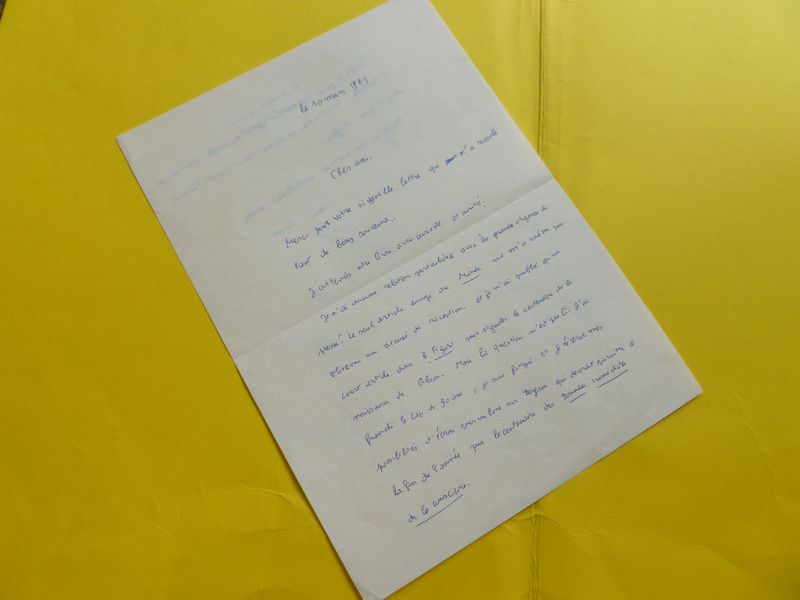 le 10 mars 1989
Cher ami,
Merci pour votre si gentille lettre qui m'a rappelé
tant de bons souvenirs.
J'attends votre livre avec curiosité et amitié.
Je n'ai aucune relation particulière avec les grands organes de
presse. Le seul article envoyé au Monde ne m'a même pas
obtenu un accusé de réception et je n'ai publié qu'un
court article dans le Figaro pour signaler le centenaire de la
naissance de Gilson. Mais la question n'est pas là. J'ai
franchi le cap de 90 ans, je suis fatigué et je réserve mes
possibilités d'écrire pour un livre sur Bergson qui devrait paraître à
la fin de l'année pour le centenaire des Données immédiates
de la conscience.